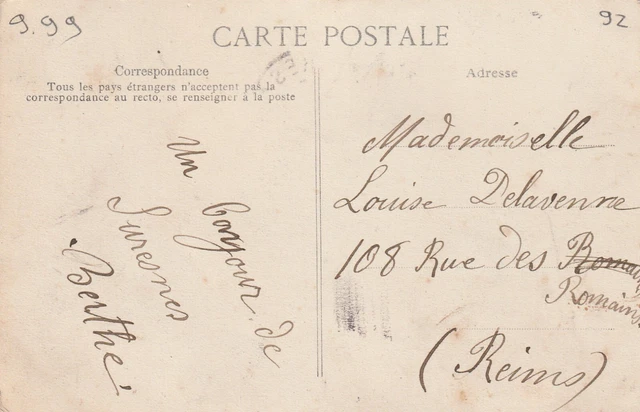 9.99
92
CARTE POSTALE
Correspondance
Tous les pays étrangers n'acceptent pas la
correspondance au recto, se renseigner à la poste
Adresse
Un bonjour de
Suresnes
Berthe
Mademoiselle
Louise Delavenne
108 Rue des
Romains
(Reims)